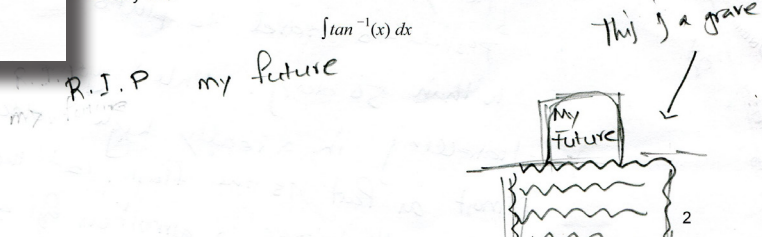 ∫tan⁻¹(x) dx
This is a grave
R.I.P my future
My
Future
2